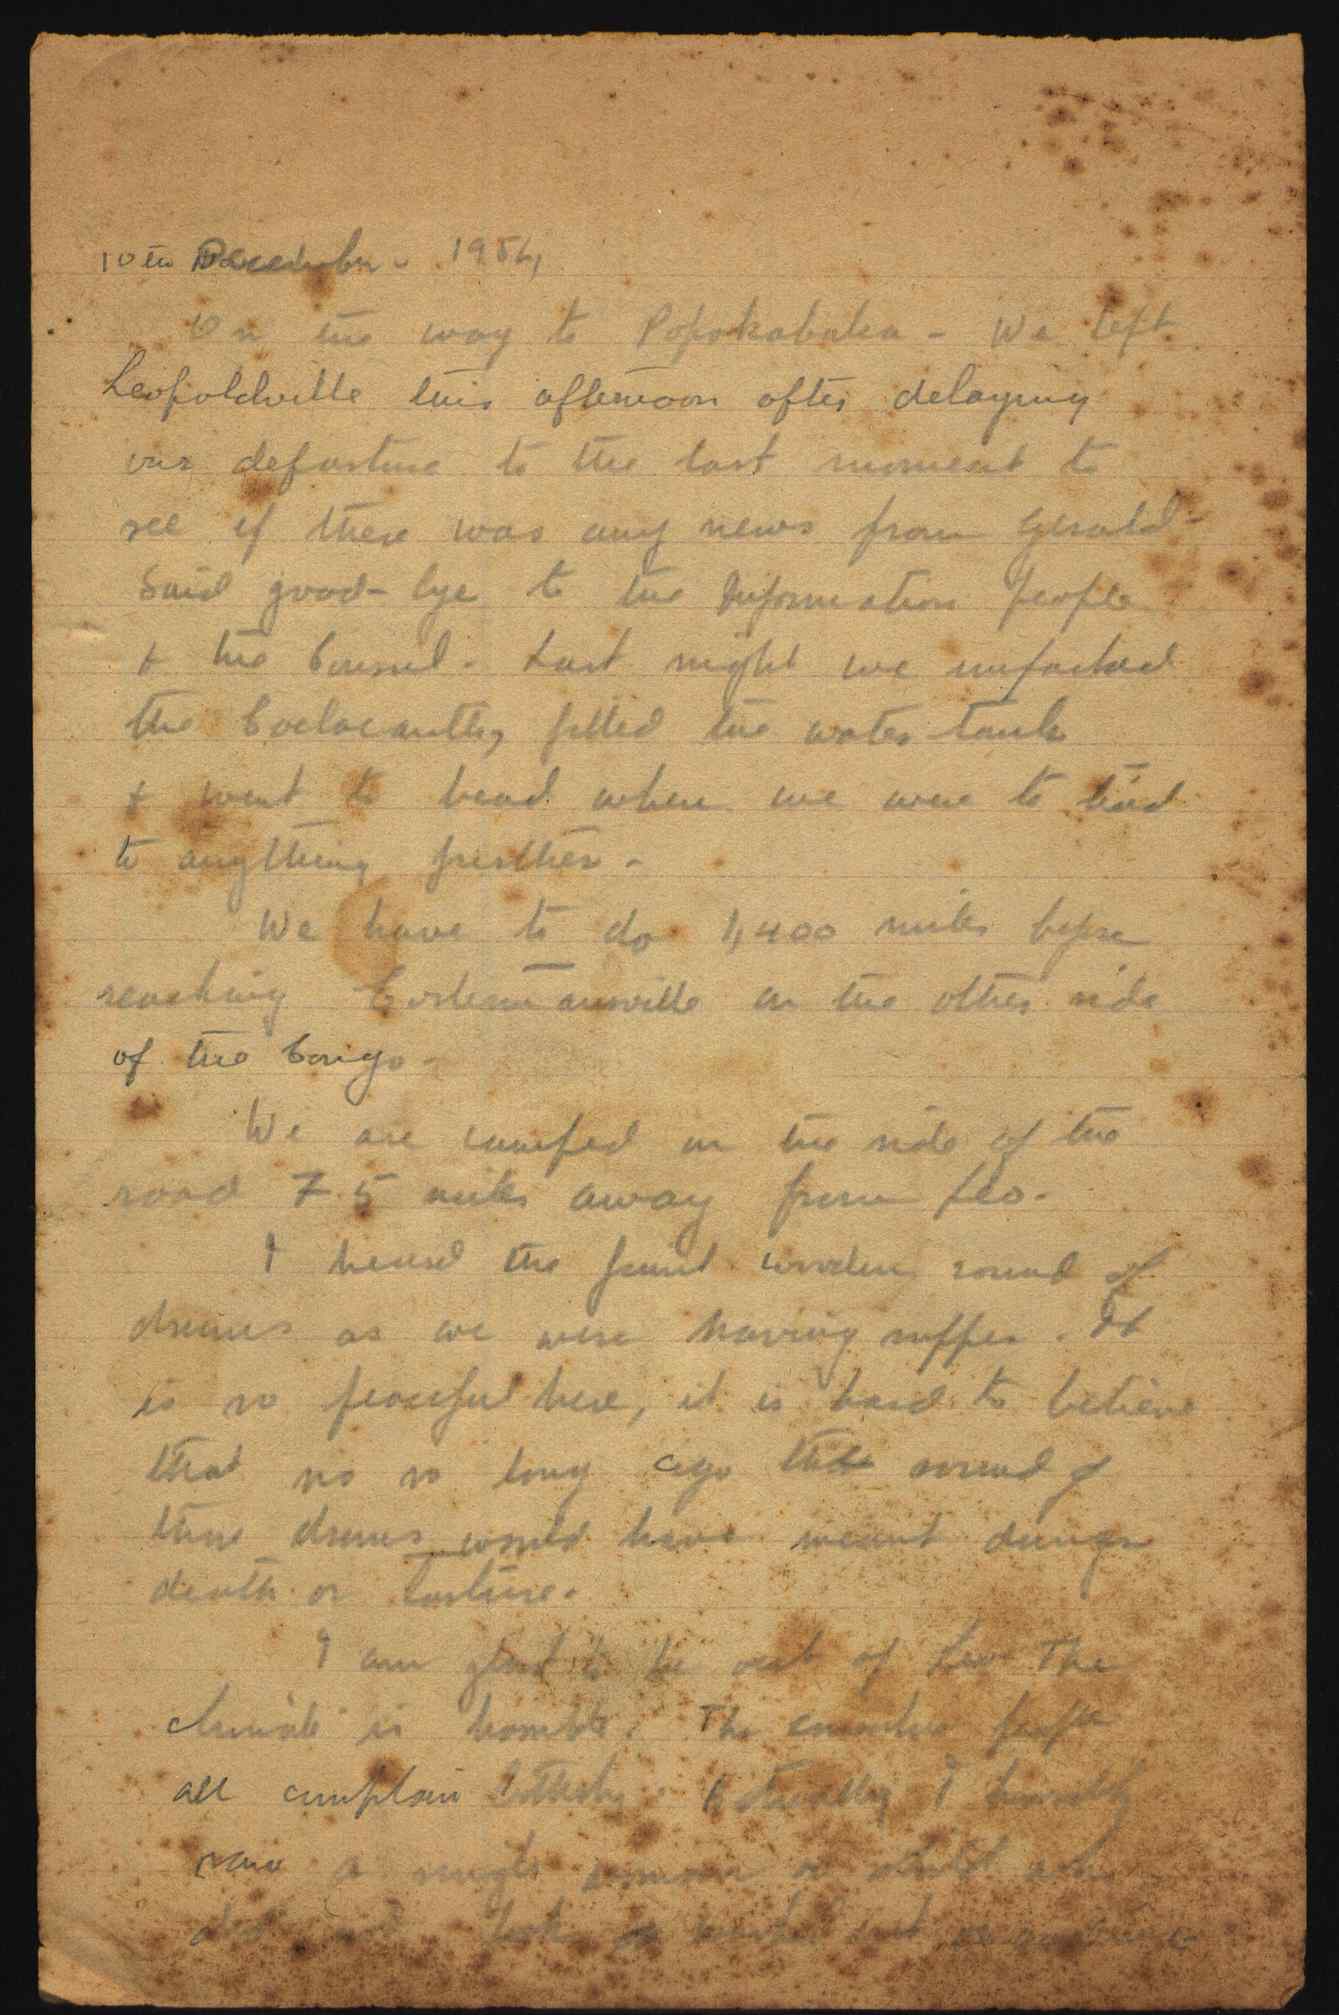 10th December - 1954
On the way to Popokabaka - We left
Leopoldville this afternoon after delaying
our departure to the last moment to
see if there was any news from Gerald -
Said good-bye to the Information people
+ the Consul - Last night we unpacked
the Coelacanth, filled the water tank
+ went to bead where we were to tired
to anything further -
We have to do 1,400 miles before
reaching Costermansville on the other side
of the Congo -
We are camped on the side of the
road 75 miles away from Leo.
I heard the faint wooden sound of
drums as we were having supper. It
is so peaceful here, it is hard to believe
that no so long ago the sound of
these drums would have meant danger
death or torture.
I am glad to be out of Leo The
climate is horrible. The people
all complain bitterly. Actually I hardly
saw a single woman or child who
did not look